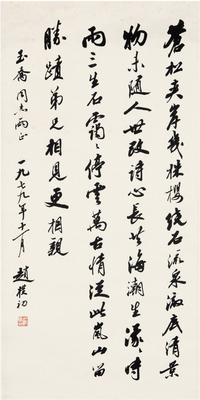 蒼松夾岸幾株櫻繞石流泉澈底清景
物未隨人世改詩心長共海潮生濛濛時
雨三生石靄靄停雲萬古情從此嵐山留
勝蹟弟兄相見更相親
玉喬同志兩正
一九七九年十一月 趙樸初